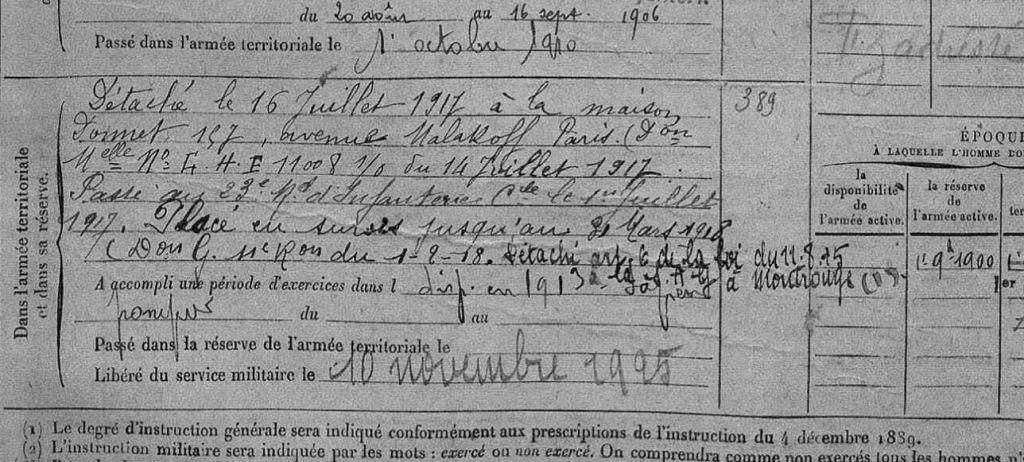 du 20 août au 16 sept. 1906
Passé dans l'armée territoriale le 1er octobre 1910
Détaché le 16 Juillet 1917 à la maison 389
Donnet 157, avenue Malakoff Paris. (Don
Melle No G. H. E 11008 1/0 du 14 Juillet 1917.
Passé au 23e Rd d'Infanterie Cle le 1er Juillet
1917. Placé en sursis jusqu'au 31 Mars 1918
(Don G. du 1-2-18. Détaché art. 6 de la loi du 11.8.15
A accompli une période d'exercices dans l disp. en 1913 à Montrouge
du au
Passé dans la réserve de l'armée territoriale le
Libéré du service militaire le 10 novembre 1925
Dans l'armée territoriale
et dans sa réserve.
ÉPOQUE
À LAQUELLE L'HOMME
la disponibilité de l'armée active.
la réserve de l'armée active.
1er 9 1900
(1) Le degré d'instruction générale sera indiqué conformément aux prescriptions de l'instruction du 4 décembre 1889.
(2) L'instruction militaire sera indiquée par les mots : exercé ou non exercé. On comprendra comme non exercés tous les hommes